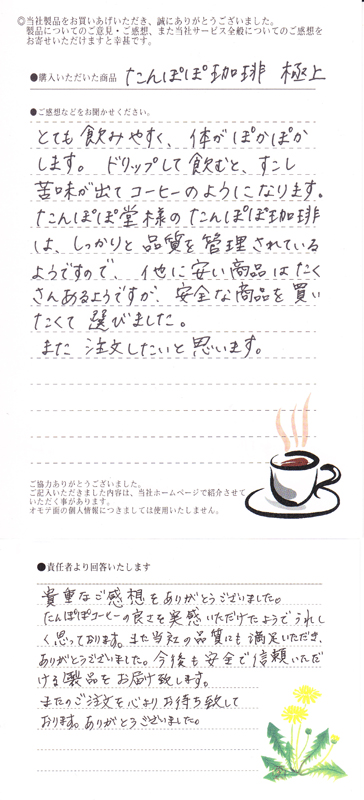 ◎当社製品をお買いあげいただき、誠にありがとうございました。
製品についてのご意見・ご感想、また当社サービス全般についてのご感想を
お寄せいただけますと幸甚です。
●購入いただいた商品 たんぽぽ珈琲 極上
●ご感想などをお聞かせください。
とても飲みやすく、体がぽかぽか
します。ドリップして飲むと、すこし
苦味が出てコーヒーのようになります。
たんぽぽ堂様のたんぽぽ珈琲
は、しっかりと品質を管理されている
ようですので、他に安い商品はたく
さんあるようですが、安全な商品を買い
たくて選びました。
また注文したいと思います。
ご協力ありがとうございました。
ご記入いただきました内容は、当社ホームページで紹介させて
いただく事があります。
オモテ面の個人情報につきましては使用いたしません。
●責任者より回答いたします
貴重なご感想をありがとうございました。
たんぽぽコーヒーの良さを実感いただけたようでうれし
く思っております。また当社の品質にも満足いただき、
ありがとうございました。今後も安全で信頼いただ
ける製品をお届け致します。
またのご注文を心よりお待ち致して
おります。ありがとうございました。